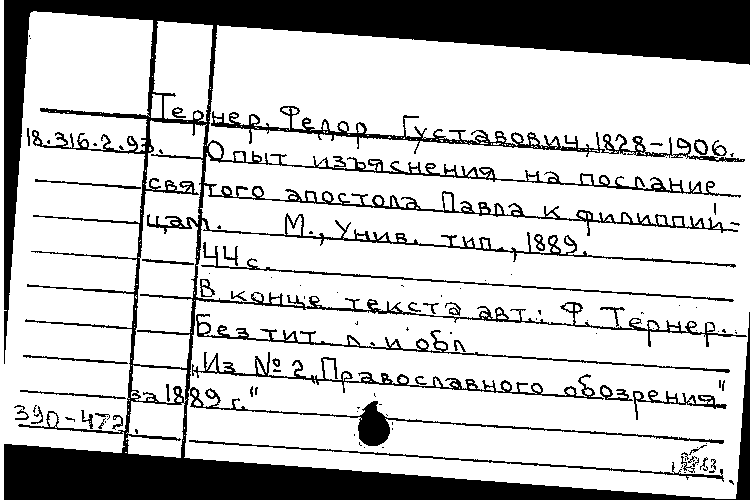 Тернер, Федор Густавович, 1828-1906.
18.316.2.93. Опыт изъяснения на послание
святого апостола Павла к филиппий-
цам. М., Унив. тип., 1889.
44 с.
В конце текста авт.: Ф. Тернер.
Без тит. л. и обл.
"Из № 2 „Православного обозрения"
за 1889 г."
390-472.